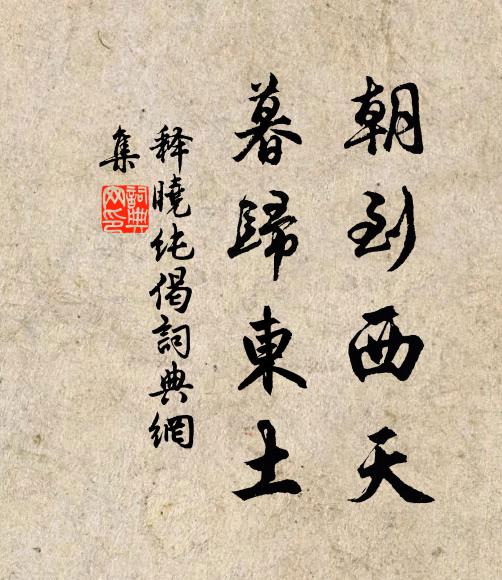 朝到西天
暮歸東土
釋曉純偈詞典網
集
詞典網印